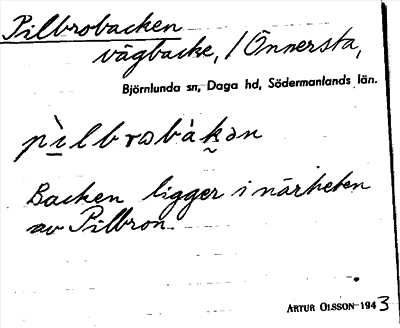 Pilbrobacken
vägbacke, / Önnersta,
Björnlunda sn, Daga hd, Södermanlands län.
pìlbrɷbàkən
Backen ligger i närheten
av Pilbron.
ARTUR OLSSON 1943